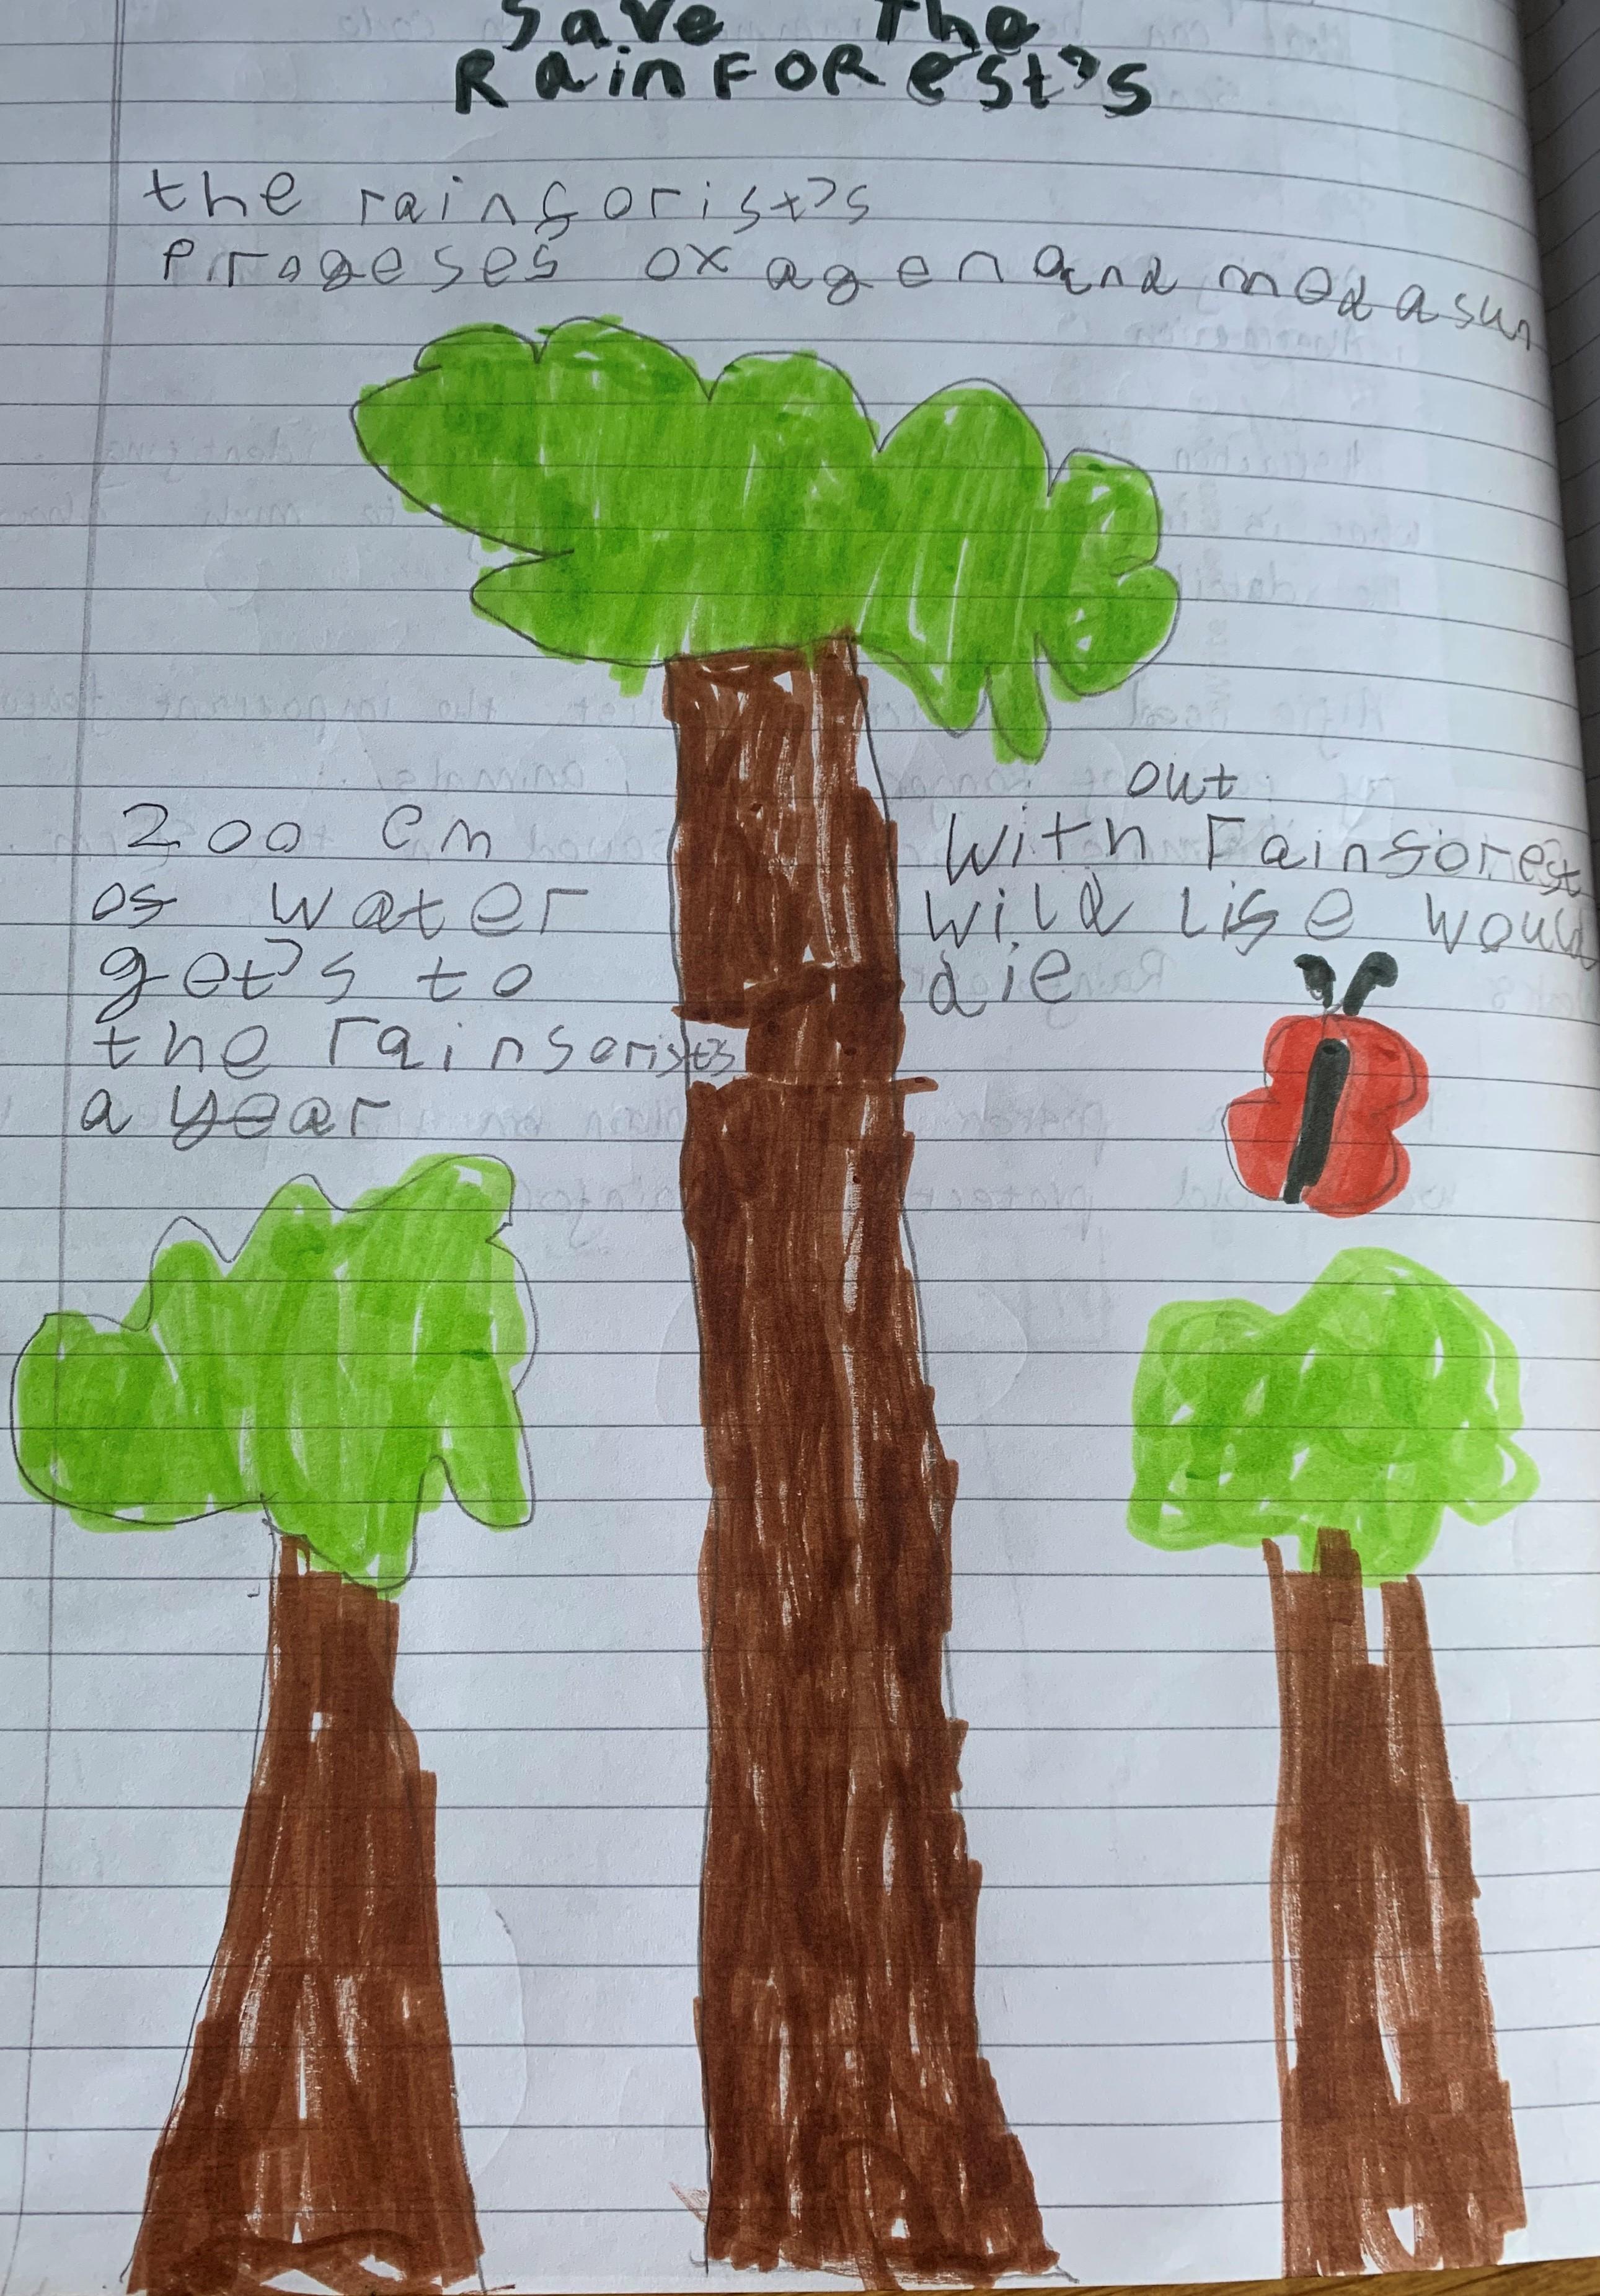 Save The
RainFORest's
the rainforist's
Progeses oxagen and medasun
200 cm
of water
get's to
the rainforists
a year
out
with rainforest
wild life would
die